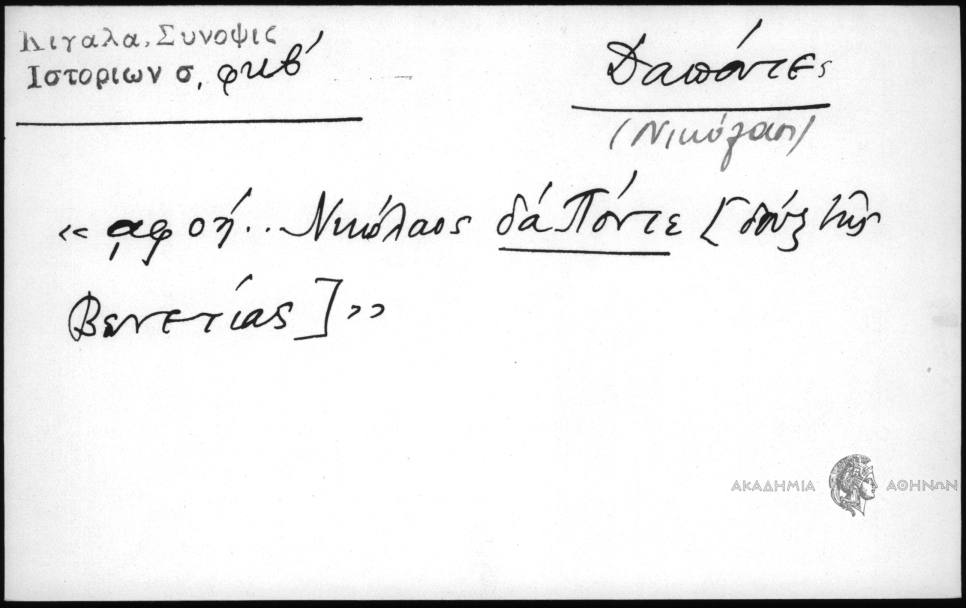 Κιγαλα, Συνοψις
Ιστοριων σ. φκβ΄
Δαπόντες
(Νικόλαος)
« αφοή .. Νικόλαος δά Πόντε [δούξ τῆς
Βενετίας] »
ΑΚΑΔΗΜΙΑ ΑΘΗΝΩΝ